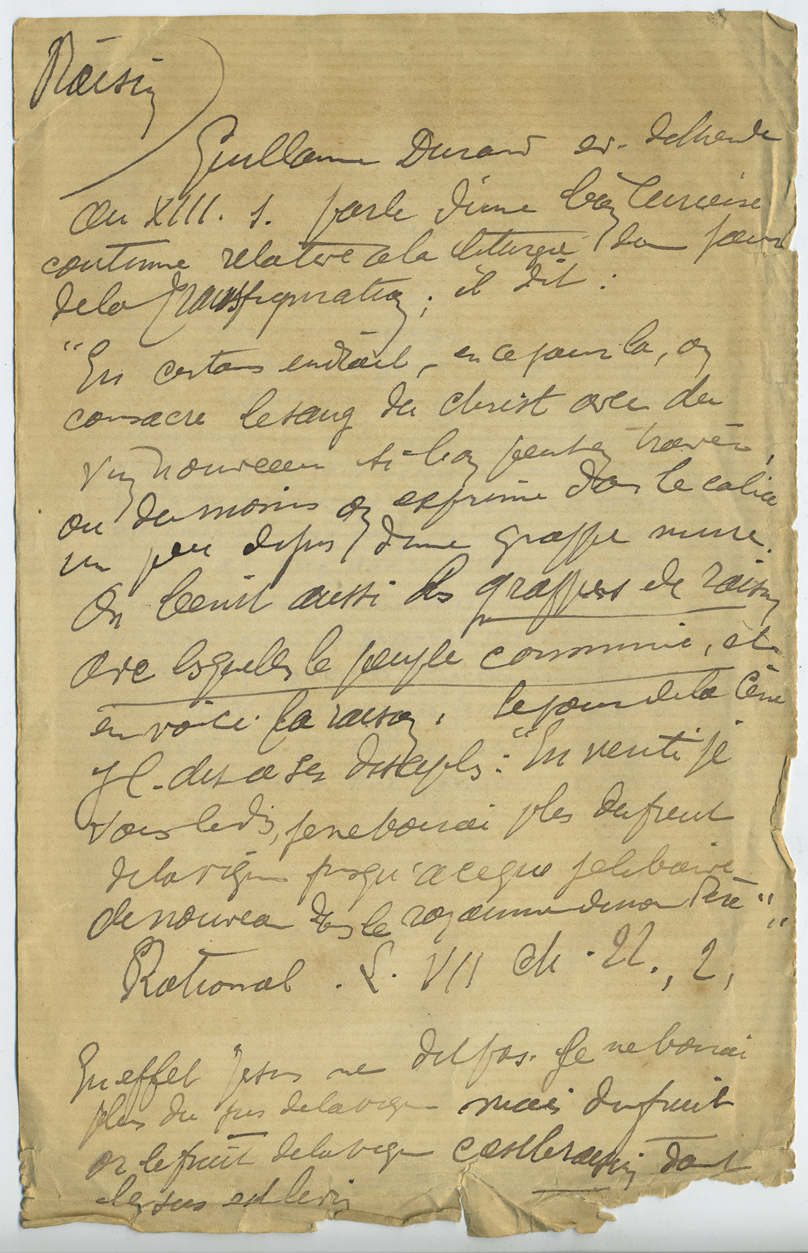 Raisin
Guillaume Durand ev. de Mende
au XIII. s. parle d'une bien curieuse
coutume relative a la liturgie du jour
de la Transfiguration; il dit :
"En certains endroits, en ce jour la, on
consacre le sang du christ avec du
vin nouveau si l'on peut en trouver,
ou du moins on exprime dans le calice
un peu de jus d'une grappe mure.
On benit aussi les grappes de raisin
avec lesquelles le peuple communie, et
en voici la raison : le jour de la Cène
J C. dit a ses disciples : "En verité je
vous le dis, je ne boirai plus du fruit
de la vigne jusqu'a ce que je le boive
de nouveau dans le royaume de mon Père""
Rational . L. VII ch. 22., 2,
En effet Jesus ne dit pas. Je ne boirai
plus du jus de la vigne mais du fruit
or le fruit de la vigne c'est le raisin dont
le jus est le vin